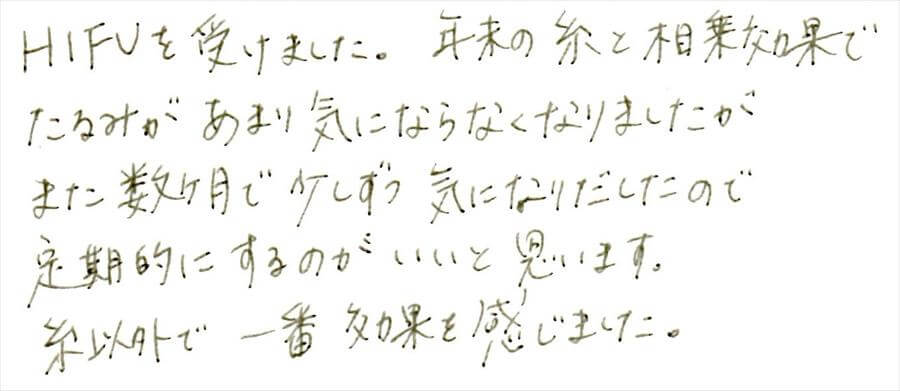 HIFUを受けました。年末の糸と相乗効果で
たるみがあまり気にならなくなりましたが
また数ケ月で少しずつ気になりだしたので
定期的にするのがいいと思います。
糸以外で一番効果を感じました。